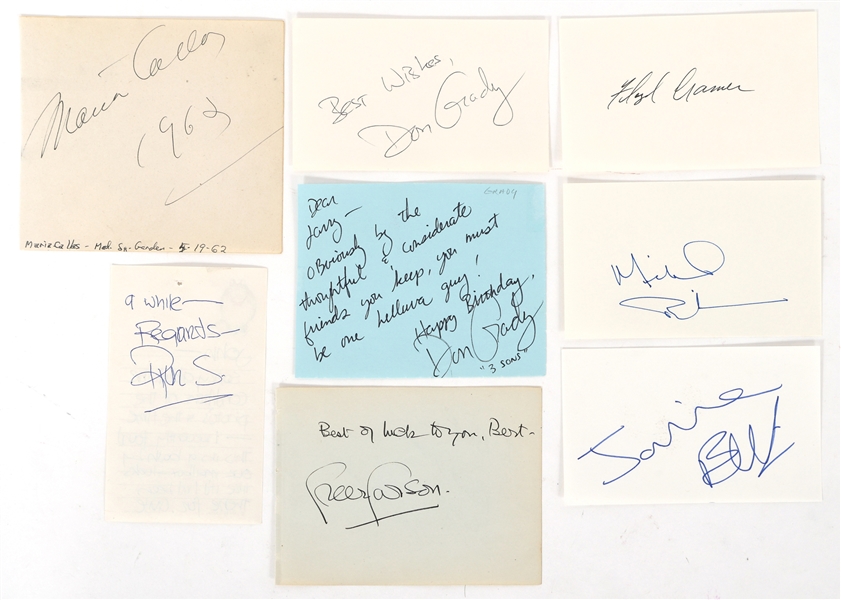 Maria Callas
1962
Maria Callas - Mad. Sq. Garden - 5-19-62
Best Wishes,
Don Grady
Floyd Cramer
GRADY
Dear
Larry—
Obviously by the
thoughtful & considerate
friends you keep, you must
be one helluva guy!
Happy Birthday,
Don Grady
"3 SONS"
Michael
a while—
Regards—
Dick S.
Best of luck to you, Best-
Greer Garson.